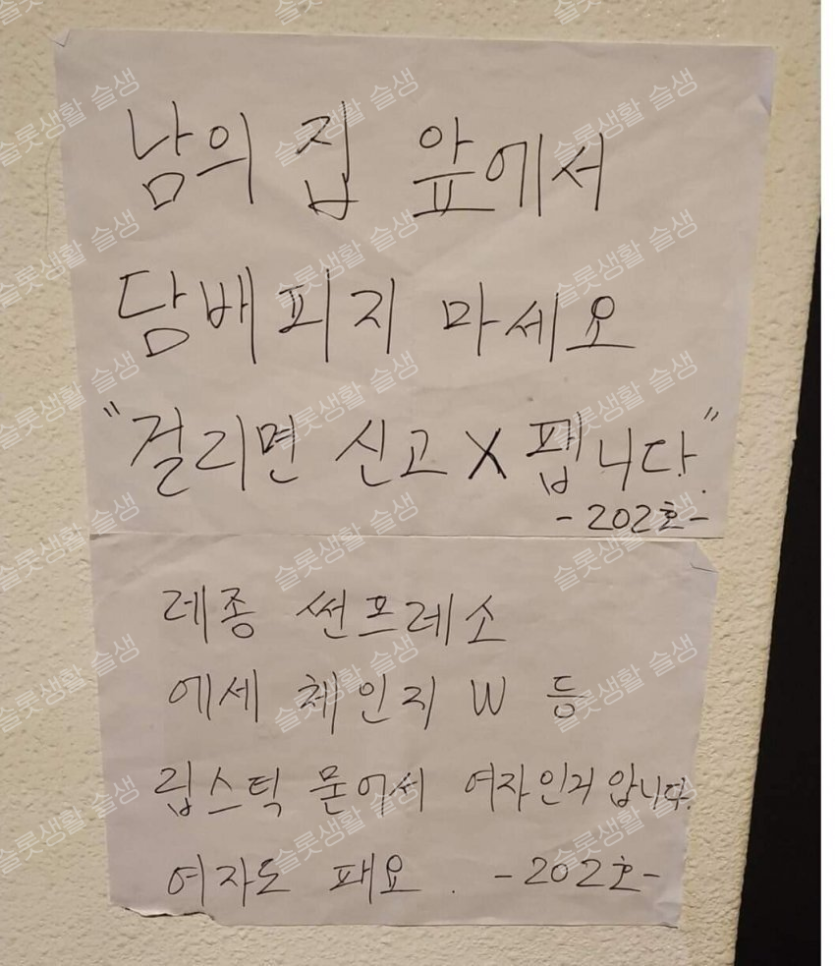 남의 집 앞에서
담배피지 마세요
"걸리면 신고 X 팹니다."
-202호-
레종 썬프레소
에세 체인지 W 등
립스틱 묻어서 여자인거 압니다.
여자도 패요. -202호-
슬롯생활 슬생